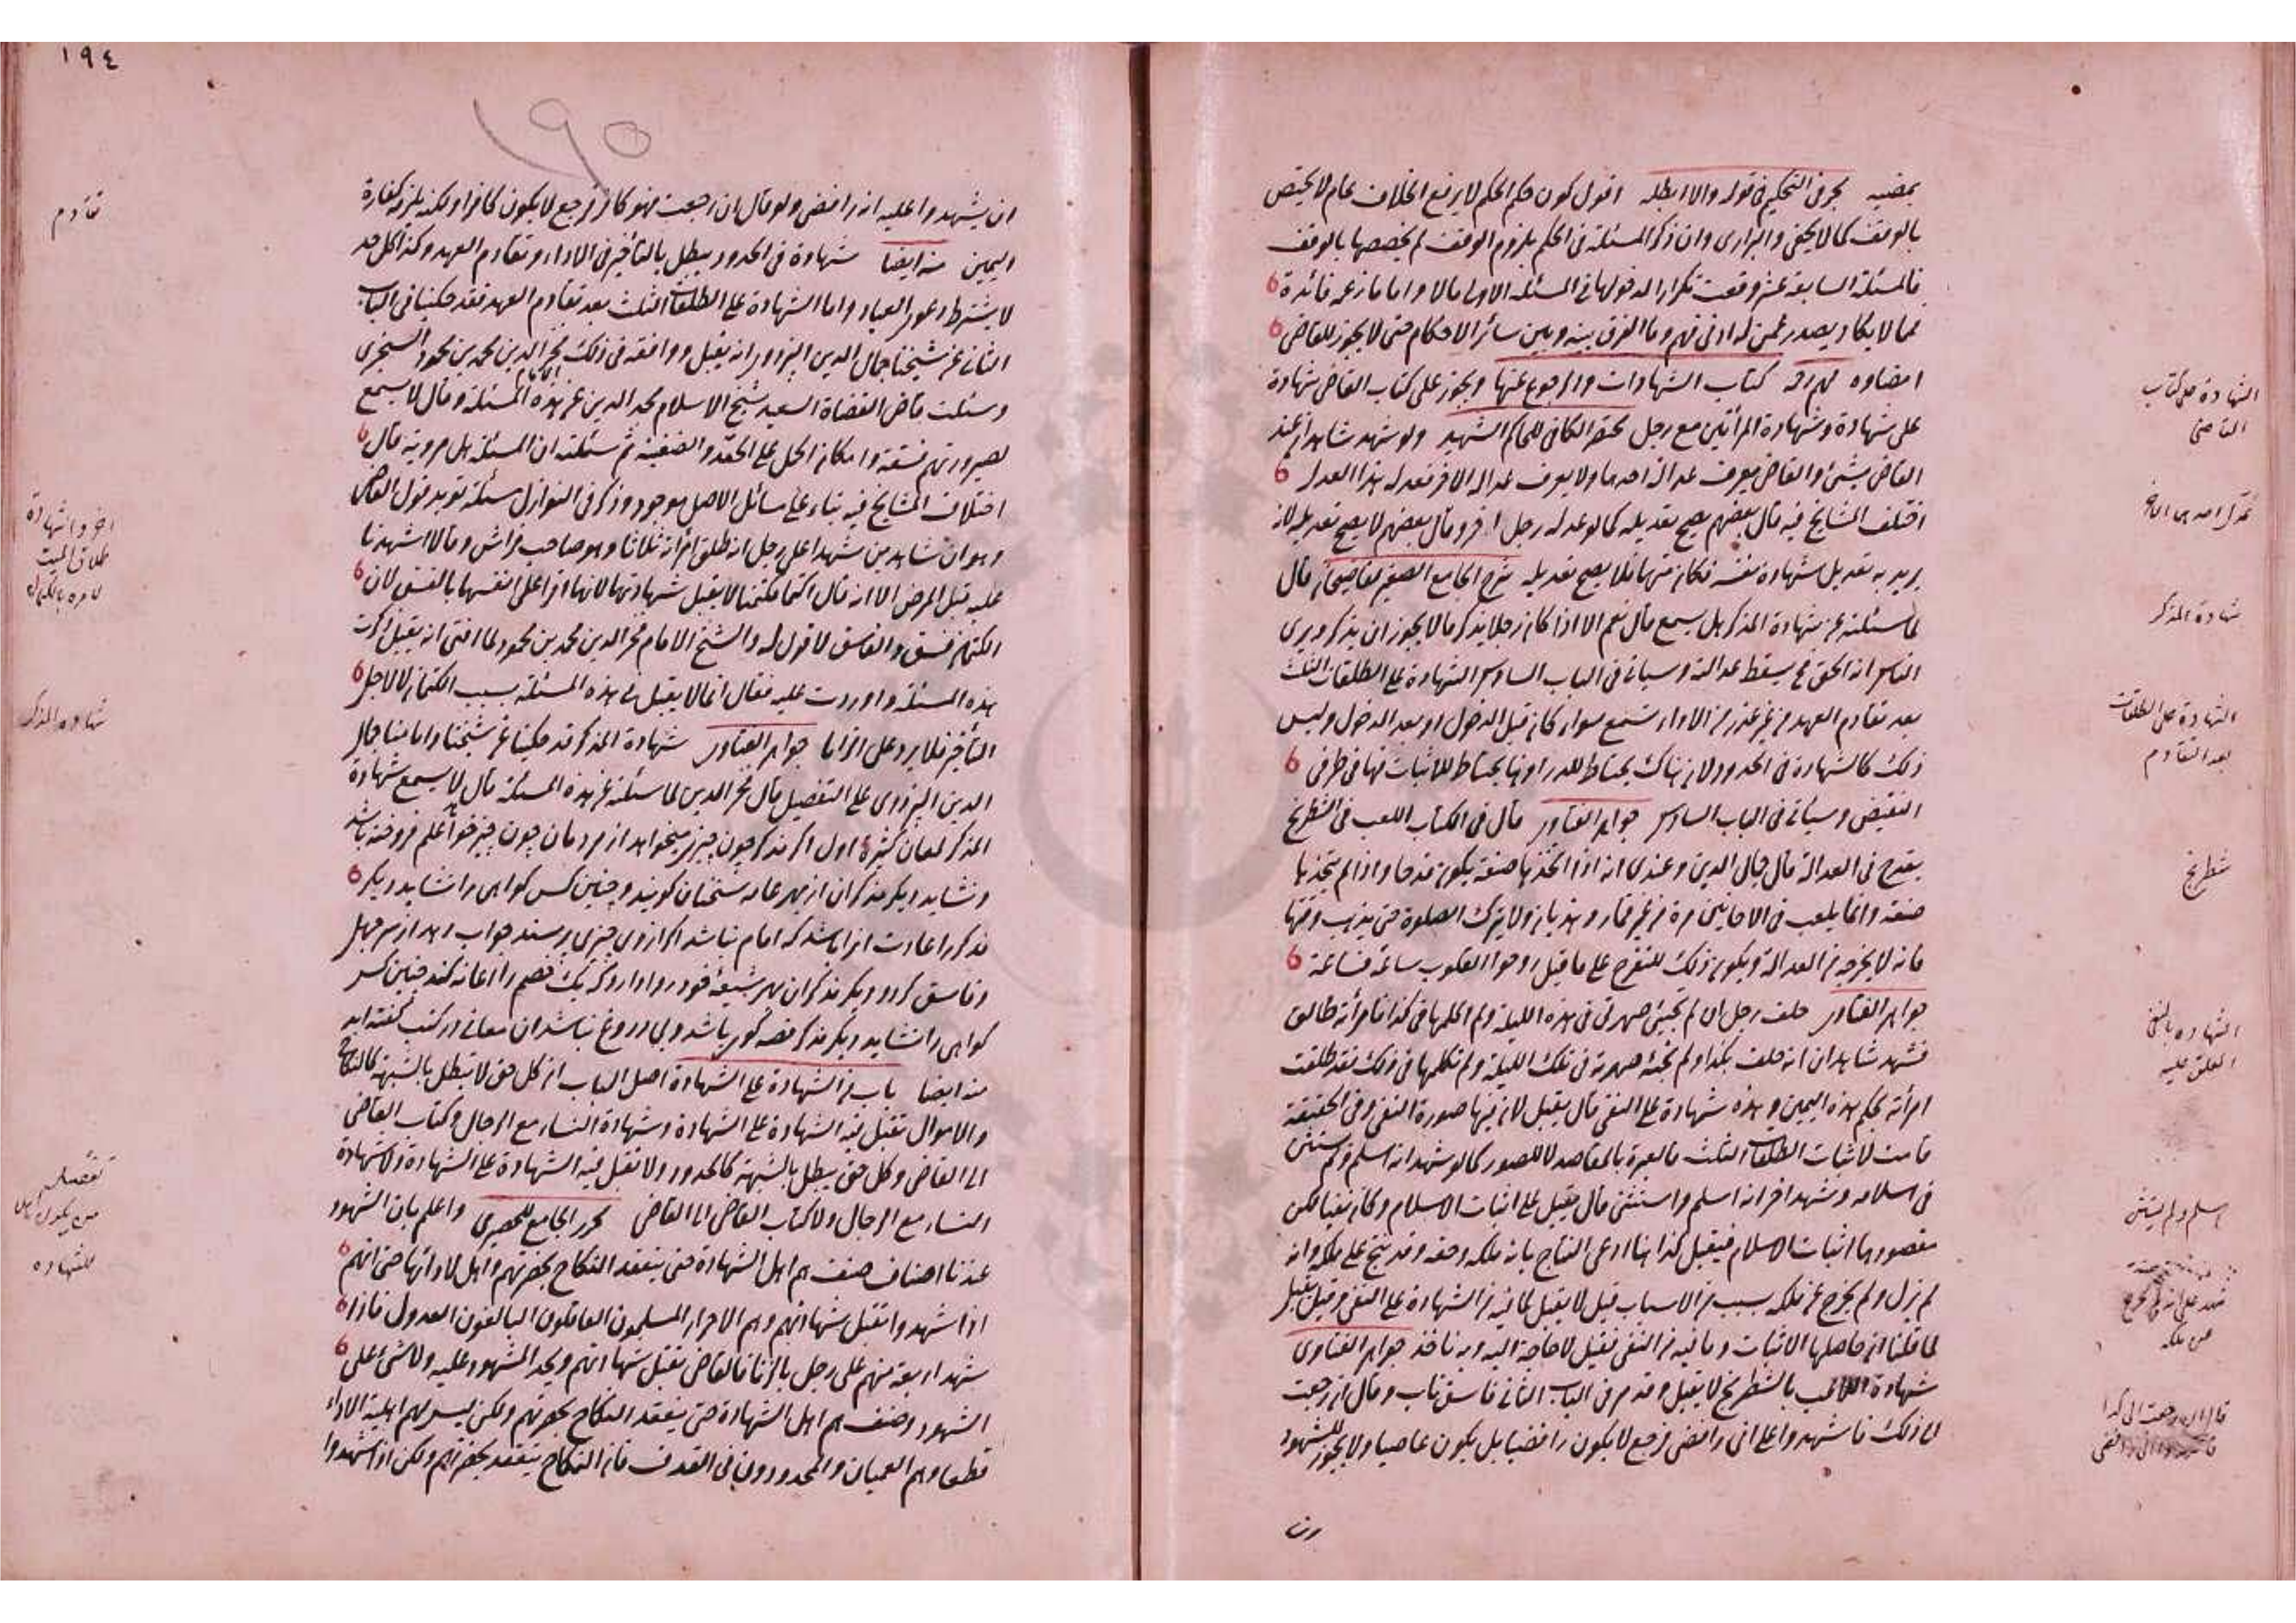 يمضيه بحر في التحكيم في قوله والا ابطله اقول كون حكم الحكم لا يرفع الخلاف عام لا يختص
بالوقف كما لا يخفى والبزازى وان ذكر المسئلة فى الحكم بلزوم الوقف لم يخصصها بالوقف
فالمسئلة السابعة عشر وقعت تكرارا لدخولها فى المسئلة الاولى مالا واما ما زعمه فائدة
مما لا يكاد يصدر عمن له ادنى فهم وما الفرق بينه وبين سائر الاحكام حتى لا يجوز للقاضى
امضاوه كتاب الشهادات والرجوع عنها ويجوز على كتاب القاضى شهادة
على شهادة وشهادة امرأتين مع رجل مختصر الكافى للحاكم الشهيد ولو شهد شاهدان عند
القاضى بشىء والقاضى يعرف عدالة احدهما ولا يعرف عدالة الاخر فعدله هذا العدل
اختلف المشايخ فيه قال بعضهم يصح تعديله كما لو عدله رجل اخر وقال بعضهم لا يصح تعديله لانه
يريد به تعديل شهادة نفسه فكان متهما فلا يصح تعديله شرح الجامع الصغير لقاضيخان قال
لما سئلته عن شهادة المذكر هل يسمع قال نعم الا اذا كان رجلا يذكر ما لا يجوز ان يذكر ويرى
الناس انه الحق يسقط عدالته وسياتى فى الباب السادس الشهادة على الطلقات الثلث
بعد تقادم العهد من غير عذر من الاداء تسمع سواء كان قبل الدخول او بعد الدخول وليس
ذلك كالشهادة فى الحدود لان هناك يحتاط للدرء وهنا يحتاط للاثبات فهما فى طرفى
النقيض وسياتى فى الباب السادس جواهر الفتاوى قال فى الكتاب اللعب فى الشطرنج
يقدح فى العدالة قال جمال الدين وعندى انه اذا اتخذها صنعة يكون قدحا واذا لم يتخذها
صنعة وانما يلعب فى الاحايين مرة من غير قمار وهذيان ولا يترك الصلوة حتى يذهب وقتها
فانه لا يخرجه من العدالة ويكون ذلك للتفرج على ما قيل روحوا القلوب ساعة فساعة
جواهر الفتاوى حلف رجل ان لم تجئ صهرتى فى هذه الليلة ولم اكلمها فى كذا فامرأته طالق
فشهد شاهدان انه حلف بكذا ولم تجئه صهرته فى تلك الليلة ولم تكلمها فى ذلك فقد طلقت
امرأته بحكم هذه اليمين وهذه شهادة على النفى قال يقبل لان فيها صورة النفى وفى الحقيقة
قامت لاثبات الطلقات الثلث فالعبرة بالمقاصد لا للصور كما لو شهد انه اسلم ولم يستثن
فى اسلامه وشهد اخر انه اسلم واستثنى قال يقبل على اثبات الاسلام وكان نفيا لكن
مقصودها اثبات الاسلام فيقبل كذا هنا ادعى النتاج بانه ملكه وحقه وقد نتج على ملكه وانه
لم يزل ولم يخرج عن ملكه بسبب من الاسباب قيل لا يقبل لما فيه من الشهادة على النفى وقيل يقبل
لما قلنا ان حاصلها الاثبات وما فيه من النفى فقيل لا حاجة اليه وبه ناخذ جواهر الفتاوى
شهادة اللاعب بالشطرنج لا يقبل وقد مر فى الباب الثانى فاسق تاب وقال ان رجعت
الى ذلك فاشهدوا على انى رافضى فرجع لا يكون رافضيا بل يكون عاصيا ولا يجوز للشهود
ان
الشهادة على كتاب
القاضى
شهادة المذكر
الشهادة على الطلقات
بعد التقادم
شطرنج
الشهادة بالنفى
اسلم ولم يستثن
عن ملكه
١٩٤
١٩٥
ان يشهدوا عليه انه رافضى ولو قال ان رجعت فهو كافر فرجع لا يكون كافرا ولكنه يلزمه كفارة
اليمين منه ايضا شهادة فى الحدود يبطل بالتأخير فى الاداء وتقادم العهد وكذا كل حد
لا يشترط دعوى العباد واما الشهادة على الطلقات الثلث بعد تقادم العهد فقد حكينا فى الباب
الثانى عن شيخنا جمال الدين البزدوى انه يقبل ووافقه فى ذلك فخر الدين محمد بن محمود السنجرى
وسئلت قاضى القضاة السعيد شيخ الاسلام مجد الدين عن هذه المسئلة وقال لا يسمع
لصيرورتهم فسقة وامكان الحمل على الحقد والضغينة ثم سئلته ان المسئلة هل مروية قال
اختلاف المشايخ فيه بناء على مسائل الاصل موجود وذكر فى النوازل مسئلة تويد قول القاضى
وهو ان شاهدين شهدا على رجل انه طلق امرأته ثلاثا وهو صاحب فراش وقالا اشهدنا
عليه قبل المرض الا انه قال اكتما فكتمنا لا يقبل شهادتهما لانهما اقرا على انفسهما بالفسق لان
الكتمان فسق والفاسق لا قول له والشيخ الامام فخر الدين محمد بن محمود لما افتى انه يقبل ذكرت
هذه المسئلة واوردت عليه فقال انما لا يقبل فى هذه المسئلة بسبب الكتمان لا لاجل
التأخير فلا يرد على جواهر الفتاوى شهادة المذكر قد حكينا عن شيخنا وامامنا جمال
الدين البزدوى على التفصيل قال فخر الدين لما سئلته عن هذه المسئلة قال لا يسمع شهادة
المذكر لمعان كثيرة اول اكر مذكر چون چيزى ميخواهد از مردمان چون چيز خواهد علم فروخته باشد
ونشايد ديكر مذكران از بهر عامه سخنان كويند وچنين كس كواهى را نشايد ديكر
مذكر را عادت انرا باشد كه امام نباشد اكر ازوى چيزى پرسند جواب دهد از سر جهل
وفاسق كردد ديكر مذكران بهر شيعه خود روا دارد كه يك خصم را اعانه كند چنين كس
كواهى را نشايد ديكر مذكر قصه كوى باشد وبى دروغ نباشد ان معانى در كتب كفته اند
منه ايضا باب من الشهادة على الشهادة اصل الباب ان كل حق لا يبطل بالشبهة كالنكاح
والاموال تقبل فيه الشهادة على الشهادة وشهادة النساء مع الرجال وكتاب القاضى
الى القاضى وكل حق يبطل بالشبهة كالحدود ولا تقبل فيه الشهادة على الشهادة ولا شهادة
النساء مع الرجال ولا كتاب القاضى الى القاضى تحرير الجامع للحصيرى واعلم بان الشهود
عندنا اصناف صنف هم اهل الشهادة حتى ينعقد النكاح بحضرتهم واهل لادائها حتى انهم
اذا شهدوا تقبل شهادتهم وهم الاحرار المسلمون العاقلون البالغون العدول فاذا
شهد اربعة منهم على رجل بالزنا فالقاضى يقبل شهادتهم ويحد المشهود عليه ولا شىء على
الشهود وصنف هم اهل الشهادة حتى ينعقد النكاح بحضرتهم ولكن ليس لهم اهلية الاداء
قطعا وهم العميان والمحدودون فى القذف فان النكاح ينعقد بحضرتهم ولكن اذا شهدوا
تقادم
شهادة المذكر
تفصيل
من يكون اهل
للشهادة